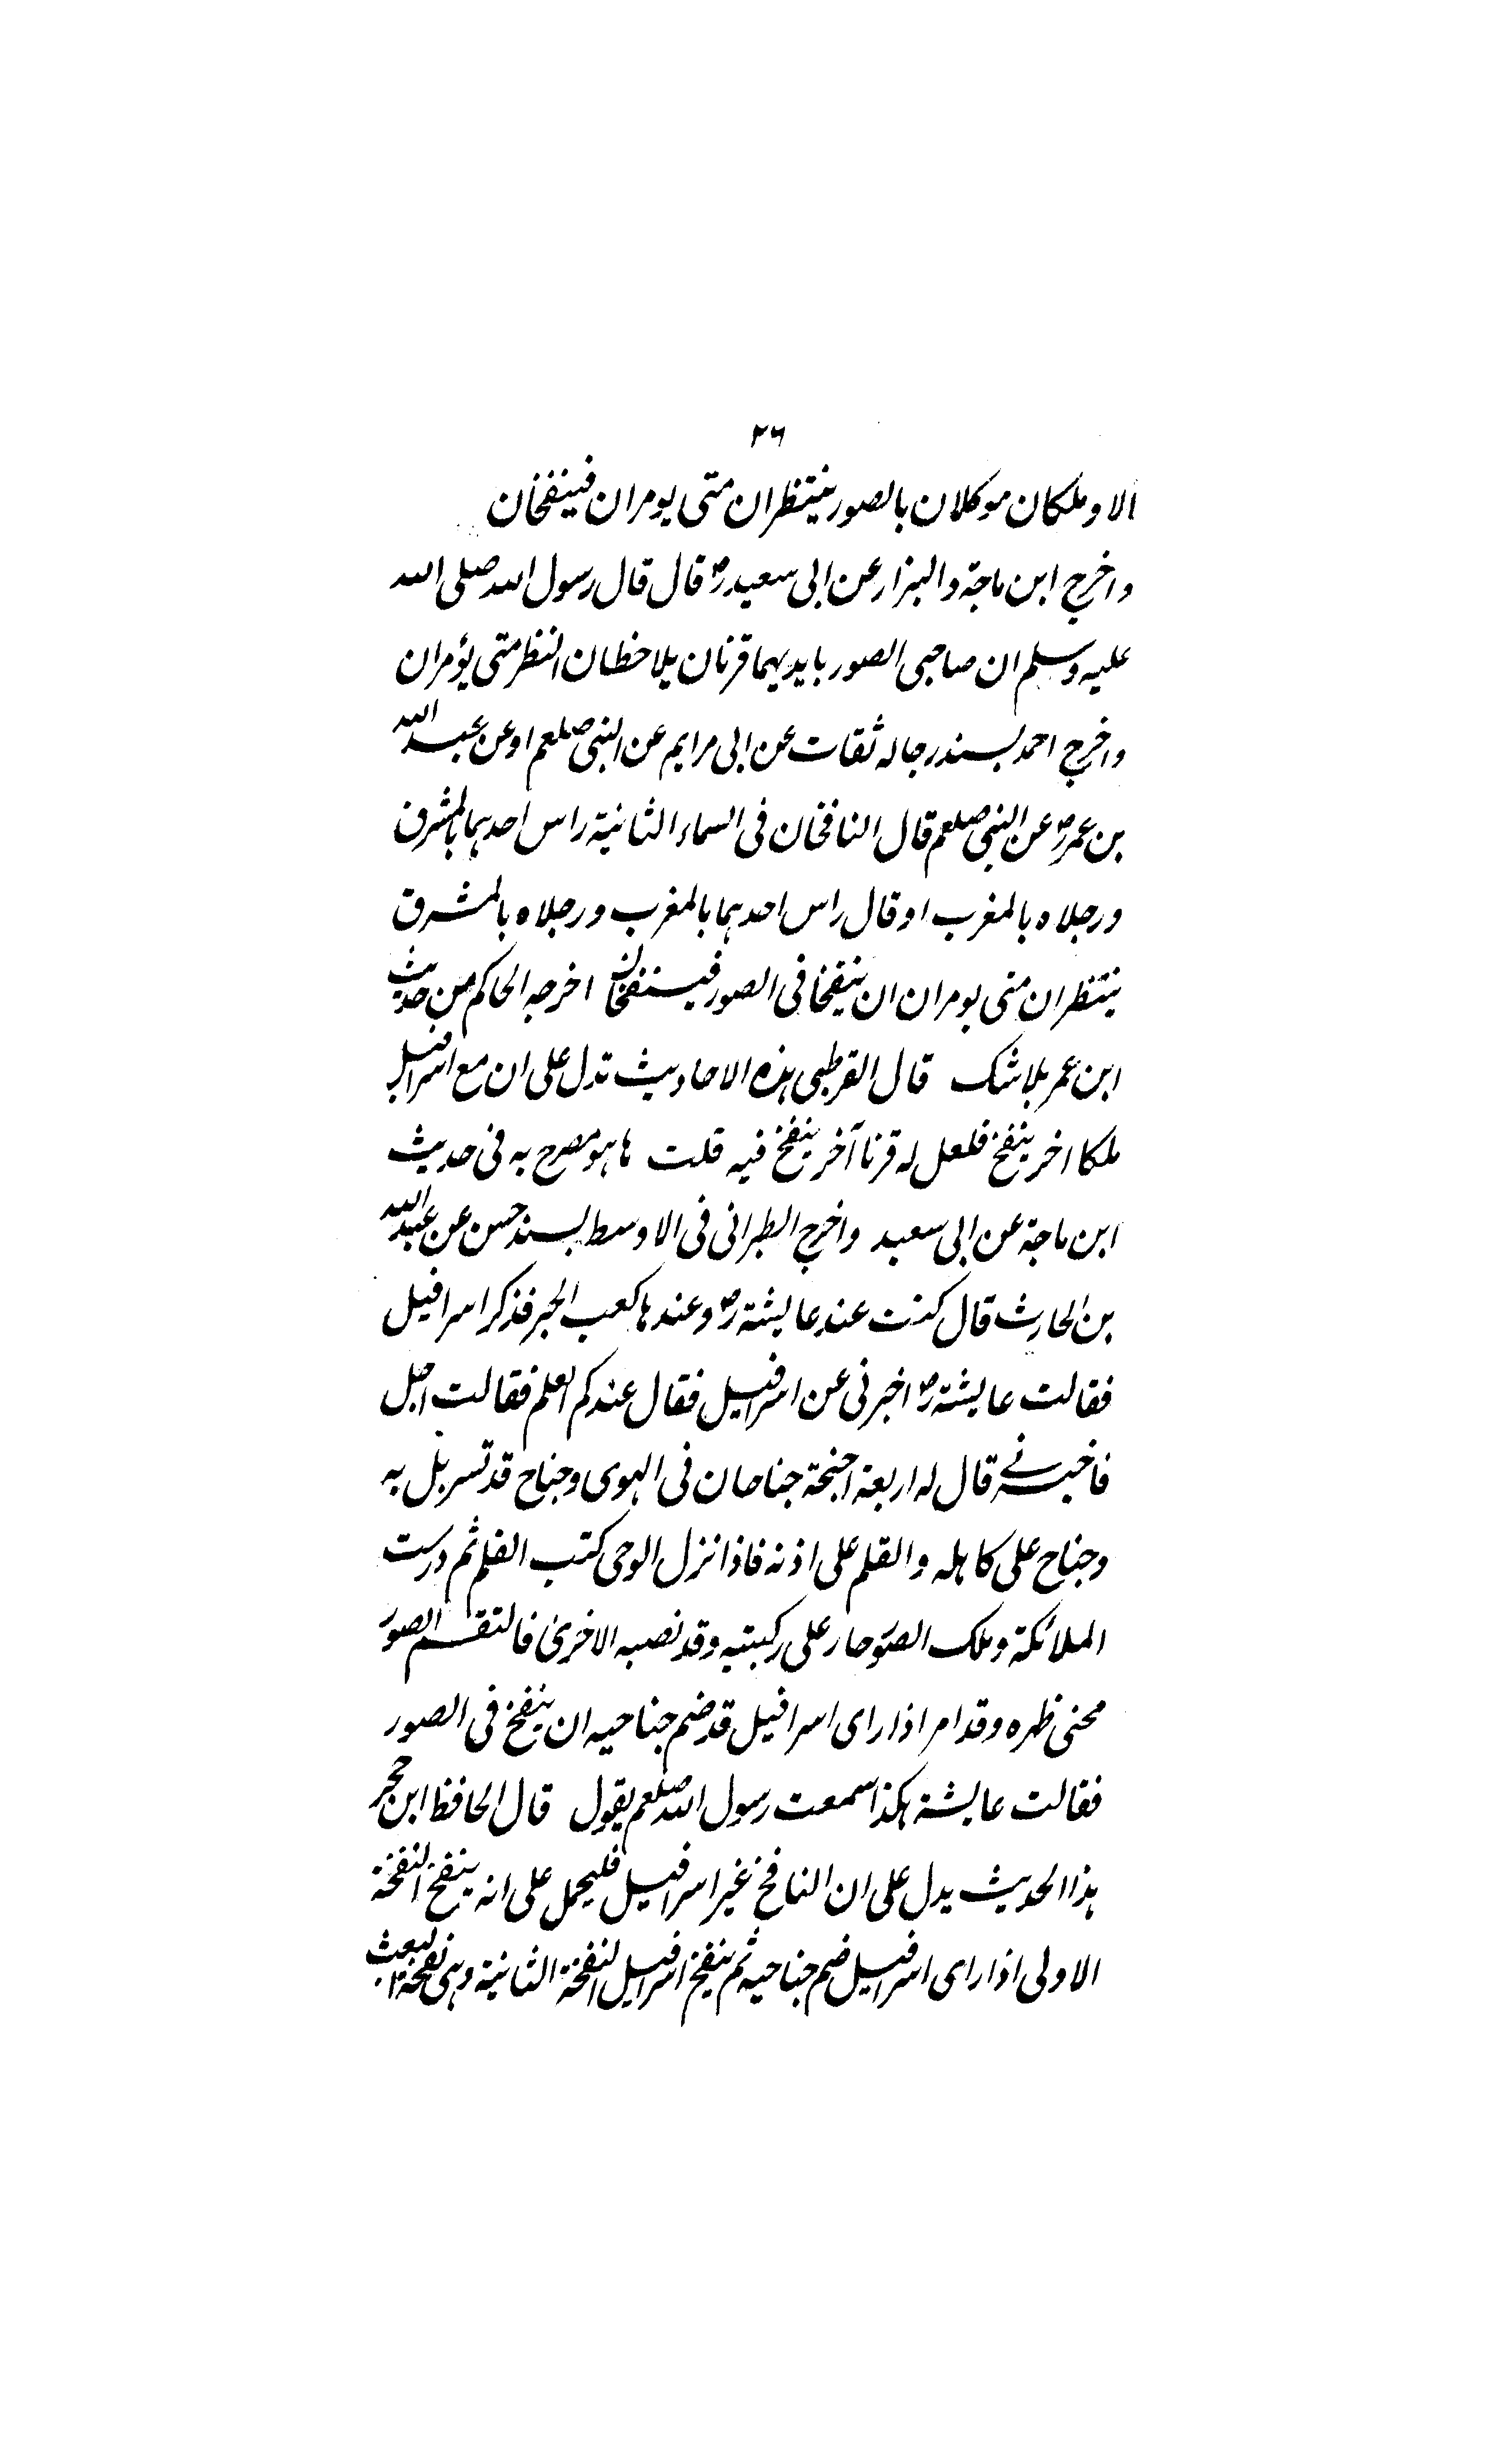 ۲۶
الا وملکان موکلان بالصور ینتظران متی یومران فینفخان
واخرج ابن ماجة والبزار عن ابی سعید رض قال قال رسول الله صلی الله
علیه وسلم ان صاحبی الصور بایدیهما قرنان یلاحظان النظر متی یؤمران
واخرج احمد بسند رجاله ثقات عن ابی مرایم عن النبی صلعم او عن عبد الله
بن عمر رض عن النبی صلعم قال النافخان فی السماء الثانیة راس احدهما بالمشرق
ورجلاه بالمغرب او قال راس احدهما بالمغرب ورجلاه بالمشرق
ینتظران متی یومران ان ینفخا فی الصور فینفخان اخرجه الحاکم من حدیث
ابن عمر بلا شک قال القرطبی هذه الاحادیث تدل علی ان مع اسرافیل
ملکا اخر ینفخ فلعل له قرنا آخر ینفخ فیه قلت ما هو مصرح به فی حدیث
ابن ماجة عن ابی سعید واخرج الطبرانی فی الاوسط بسند حسن عن عبد الله
بن الحارث قال کنت عند عایشة رض وعندها کعب الحبر فذکر اسرافیل
فقالت عایشة رض اخبرنی عن اسرافیل فقال عندکم العلم فقالت اجل
فاخبرنی قال له اربعة اجنحة جناحان فی الهوی وجناح قد تسربل به
وجناح علی کاهله والقلم علی اذنه فاذا نزل الوحی کتب القلم ثم درست
الملائکة وملک الصور جار علی رکبتیه وقد نصبه الاخری فالتقم الصور
محنی ظهره وقد امر اذا رای اسرافیل قد ضم جناحیه ان ینفخ فی الصور
فقالت عایشة هکذا سمعت رسول الله صلعم یقول قال الحافظ ابن حجر
هذا الحدیث یدل علی ان النافخ غیر اسرافیل فلیحمل علی انه ینفخ النفخة
الاولی اذا رای اسرافیل ضم جناحیه ثم ینفخ اسرافیل النفخة الثانیة وهی نفخة البعث